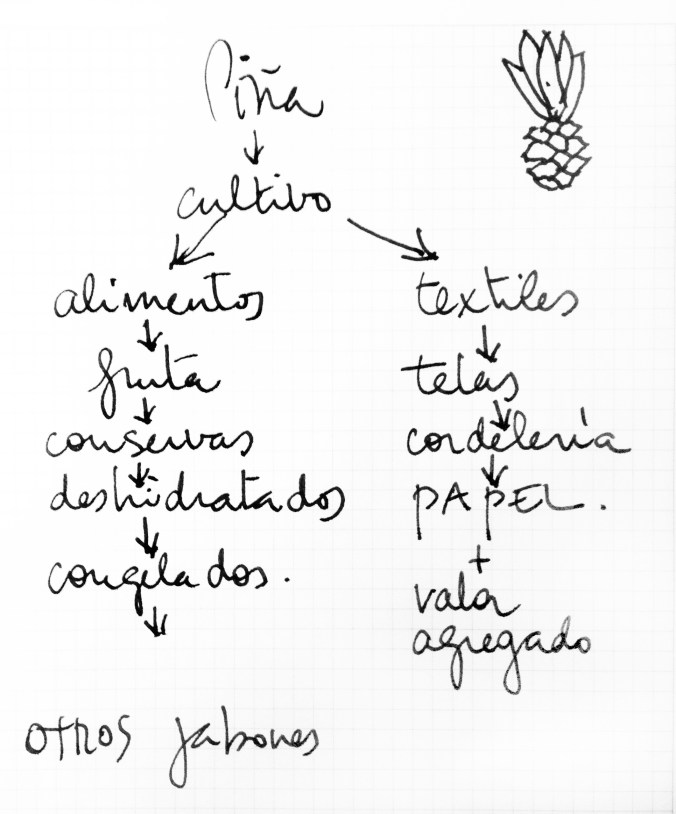 Piña
cultivo
alimentos
fruta
conservas
deshidratados
congelados.
otros jabones
textiles
telas
cordelería
PAPEL.
+
valor
agregado